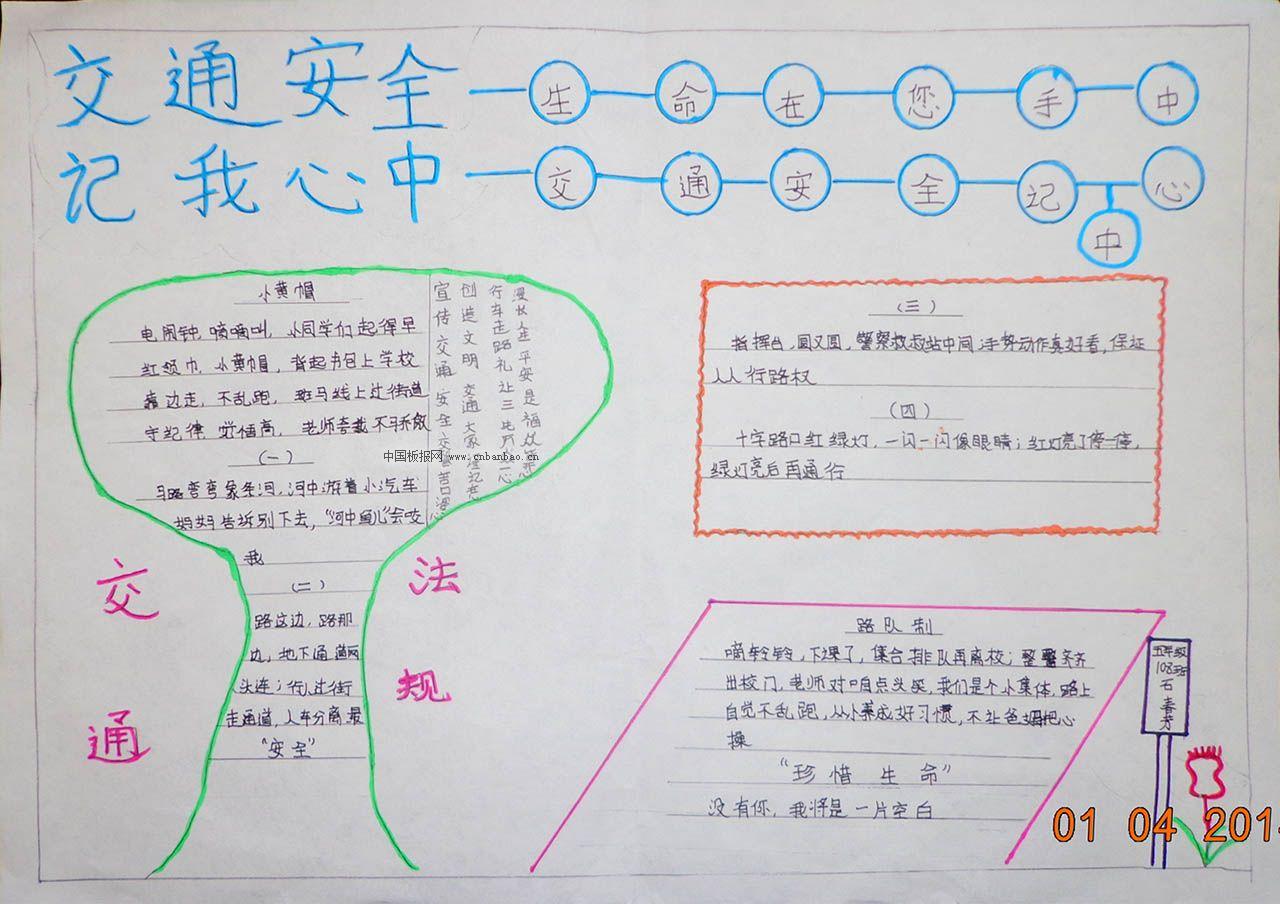 交通安全
记我心中
生命在您手中
交通安全记心中
小黄帽
电闹钟,嘀嘀叫,小同学们起得早
红领巾,小黄帽,背起书包上学校
靠边走,不乱跑,斑马线上过街道
守纪律,觉悟高,老师夸我不骄傲
(一)
马路弯弯象条河,河中游着小汽车
妈妈告诉别下去,“河中鱼儿”会咬
我
(二)
路这边,路那
边,地下通道两
头连;行人过街
走通道,人车分离最
“安全”
漫长人生平安是福
行车走路礼让三
创造文明交通大家
宣传交通安全交警苦口婆心
中国板报网 www.cnbanbao.cn
交通
法规
(三)
指挥台,圆又圆,警察叔叔站中间;手势动作真好看,保证
人人行路权
(四)
十字路口红绿灯,一闪一闪像眼睛;红灯亮了停一停,
绿灯亮后再通行
路队制
嘀铃铃,下课了,集合排队再离校;整整齐齐
出校门,老师对咱点头笑,我们是个小集体,路上
自觉不乱跑,从小养成好习惯,不让爸妈把心
操
“珍惜生命”
没有你,我将是一片空白
五年级
108班
石春芳
01 04 201